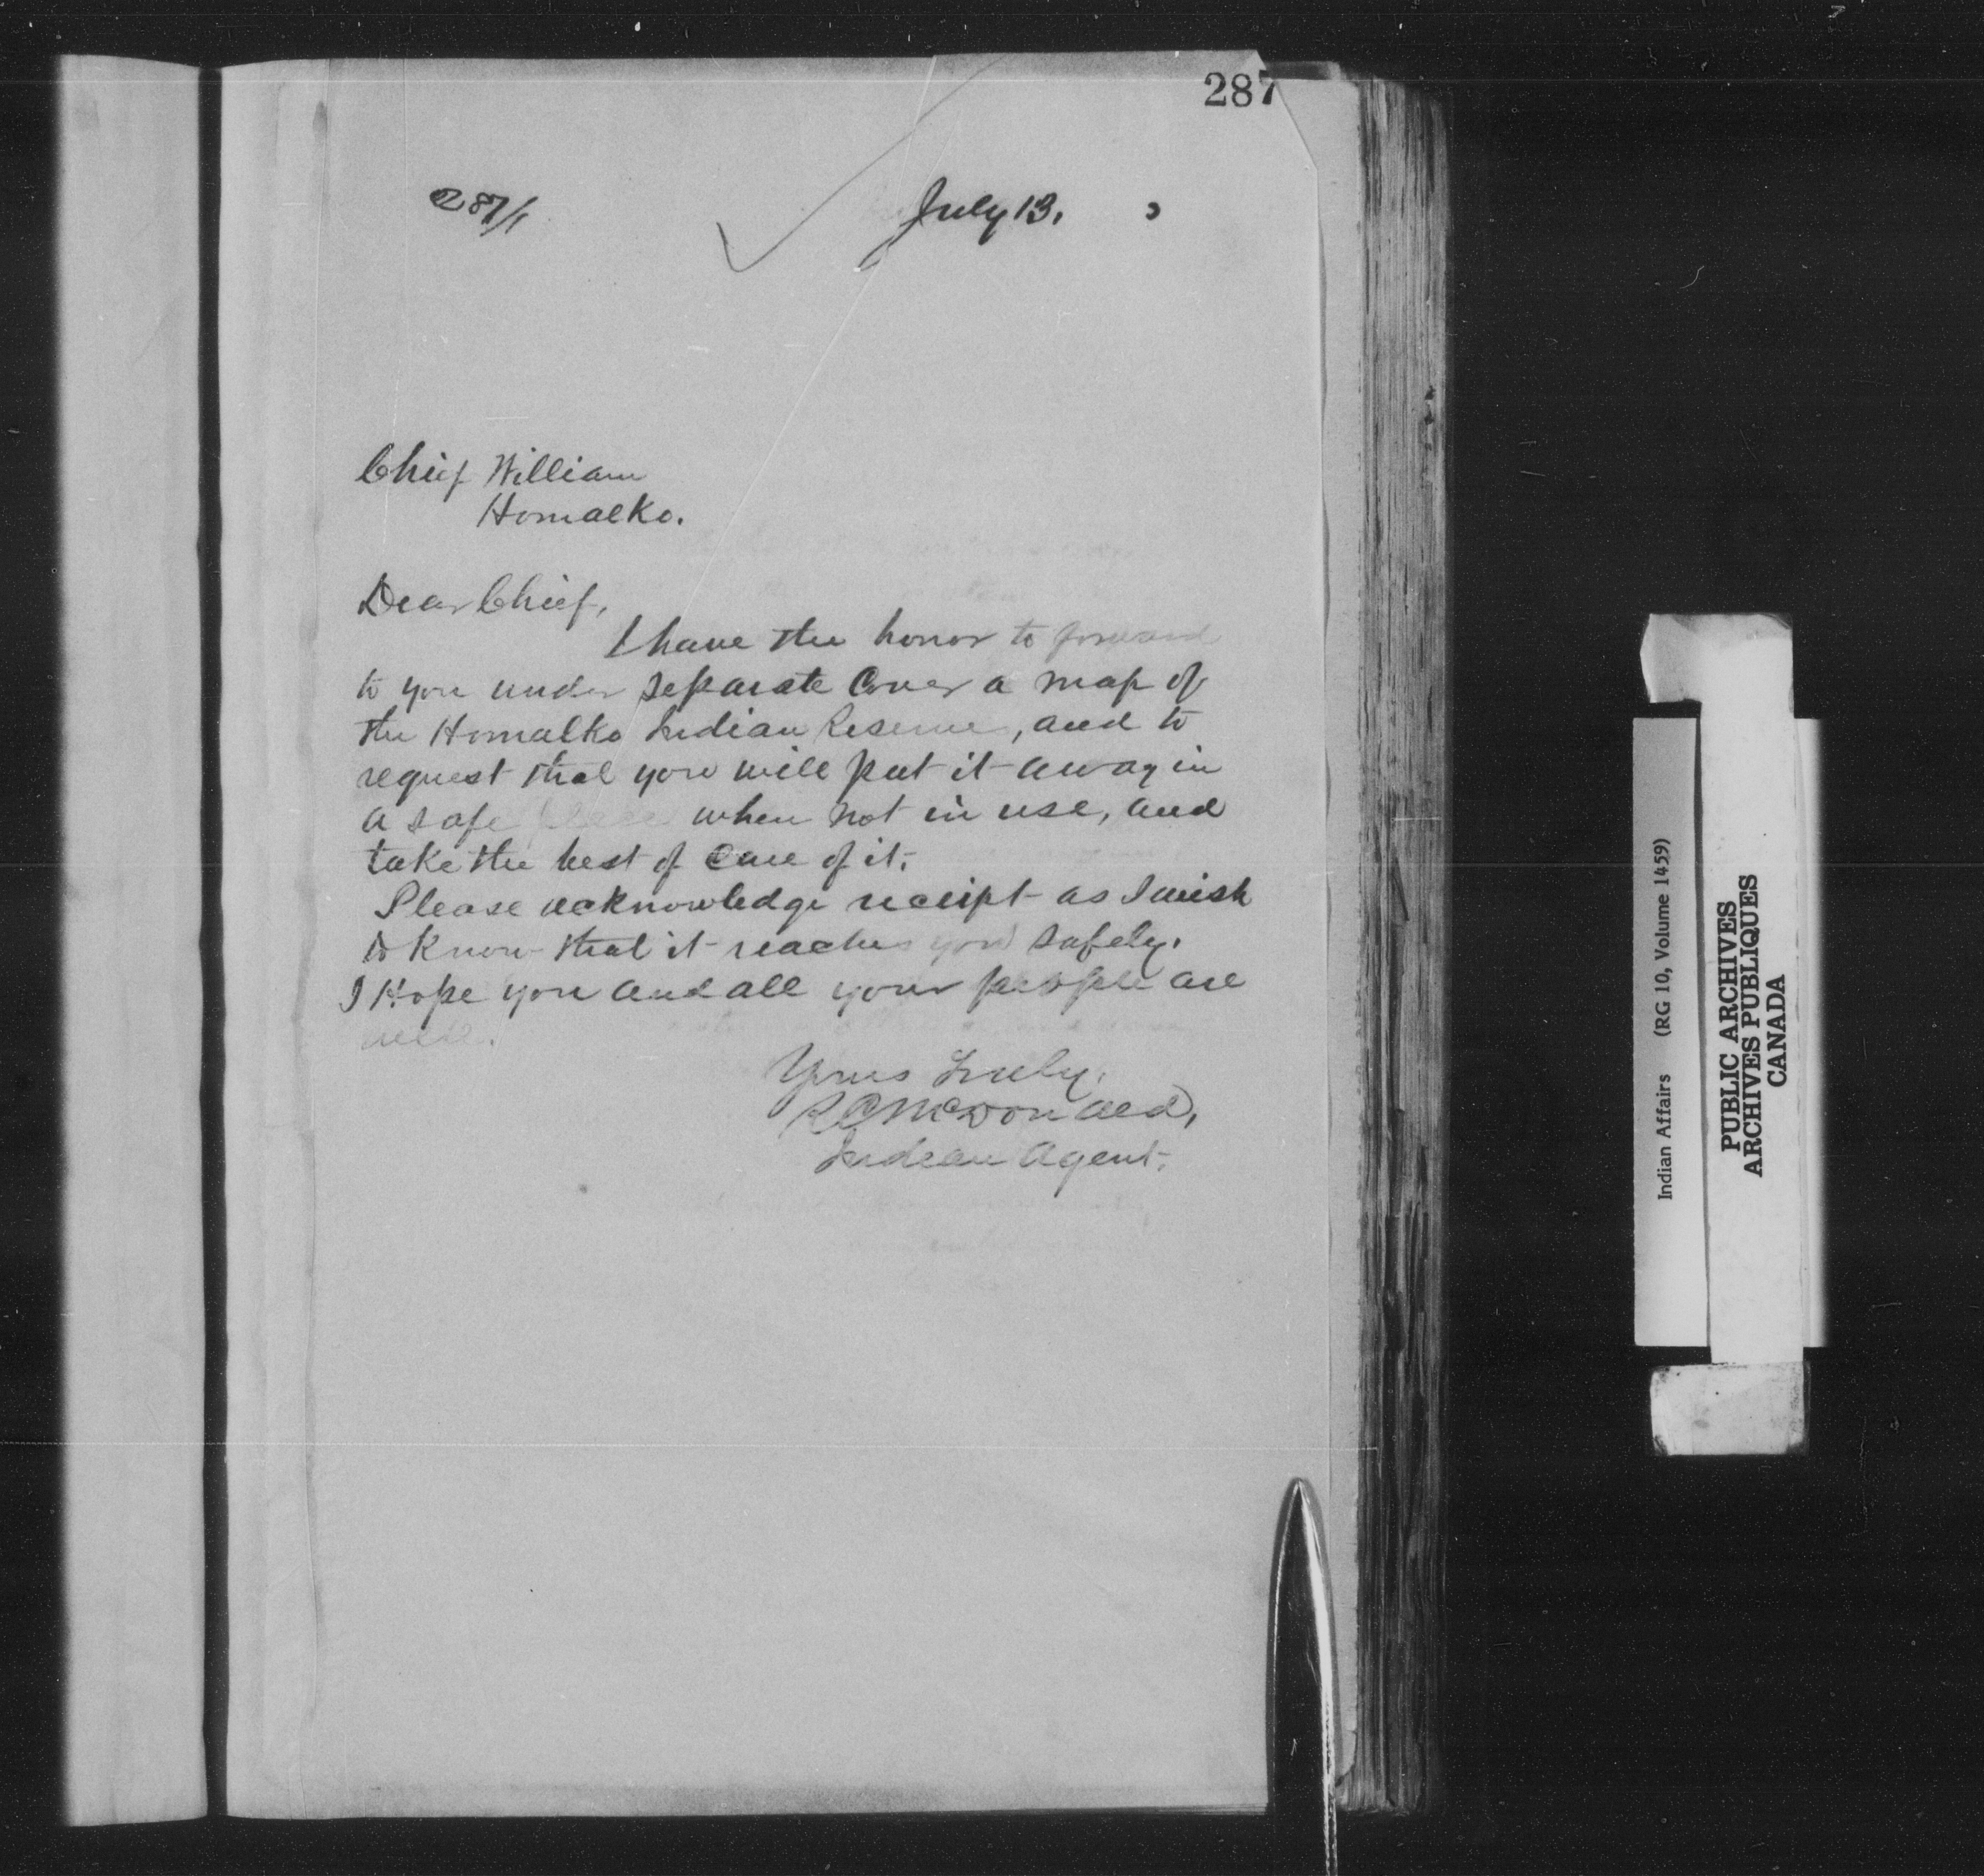 287
287/1 July 13, 3
Chief William
Homalko.
Dear Chief,
I have the honor to forward
to you under separate cover a map of
the Homalko Indian Reserve, and to
request that you will put it away in
a safe place when not in use, and
take the best of care of it.
Please acknowledge receipt as I wish
to know that it reaches you safely.
I Hope you and all your people are
well.
Yours truly,
R C McDonald,
Indian Agent.
Indian Affairs (RG 10, Volume 1459)
PUBLIC ARCHIVES
ARCHIVES PUBLIQUES
CANADA